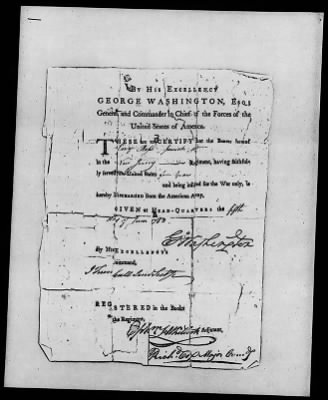 BY HIS EXCELLENCY
GEORGE WASHINGTON, Esq;
General and Commander in Chief of the Forces of the
United States of America.
THESE are to CERTIFY that the Bearer hereof
in the New Jersey Regiment, having faithful-
ly served the United States
and being inlisted for the War only, is
hereby DISCHARGED from the American Army.
GIVEN at HEAD-QUARTERS the fifth
Day of June 1783
GWashington
By HIS EXCELLENCY'S
Command,
REGISTERED in the Books
of the Regiment,
Adjutant,
Richd Cox Major